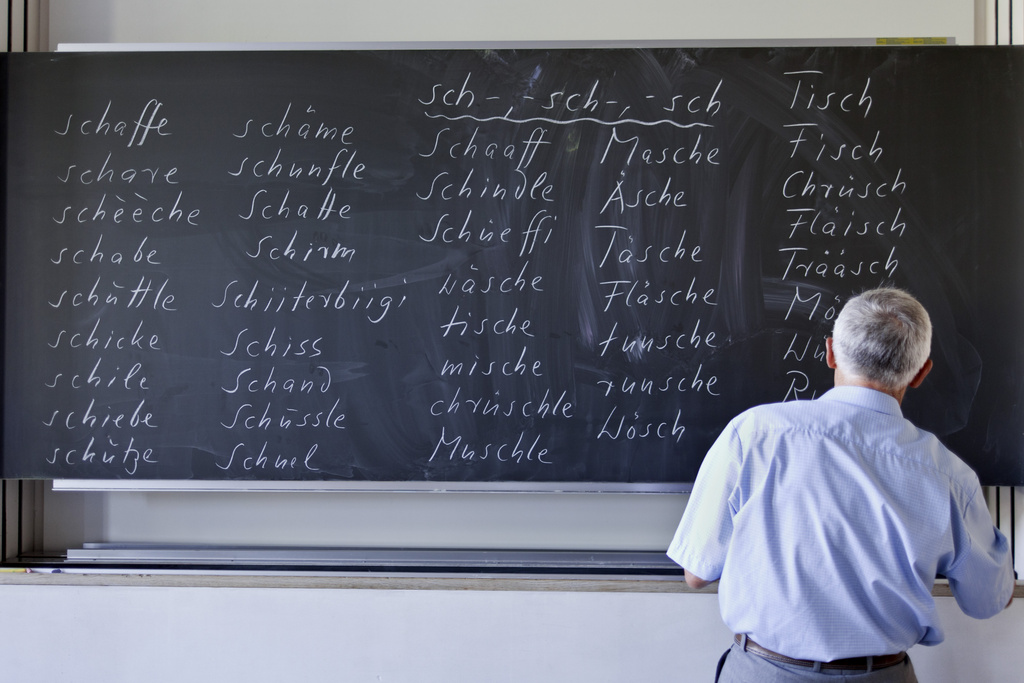 schaffe
schare
schèèche
schabe
schùttle
schicke
schile
schiebe
schùtze
schäme
schunfle
Schatte
Schirm
Schiiterbiigi
Schiss
Schand
Schüssle
Schnel
sch-, -sch-, -sch
Schaaff
Schindle
Schueffi
wäsche
tische
mische
chrüschle
Muschle
Masche
Äsche
Täsche
Fläsche
tunsche
runsche
Wösch
Tisch
Fisch
Chrüsch
Fläisch
Trääsch